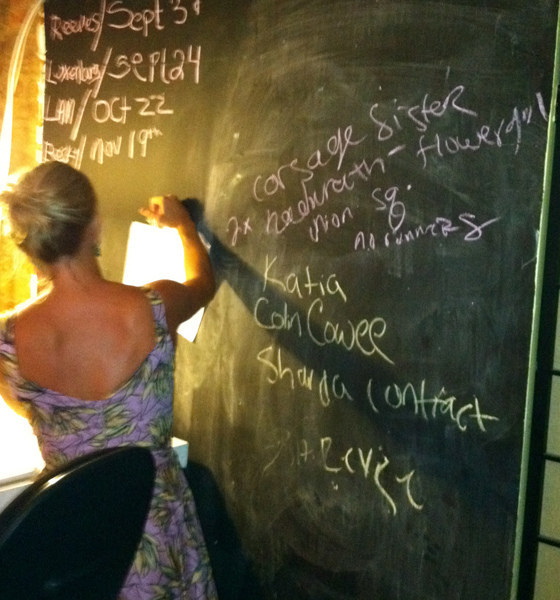 Reeves/Sept 3rd
Luxenburg/Sept 24
LAN/OCT 22
/nov 19th
corsage Sister
2x headwreath - flowergirl
Union Sq.
no runners
Katia
Colin Cowee
Sharda contract